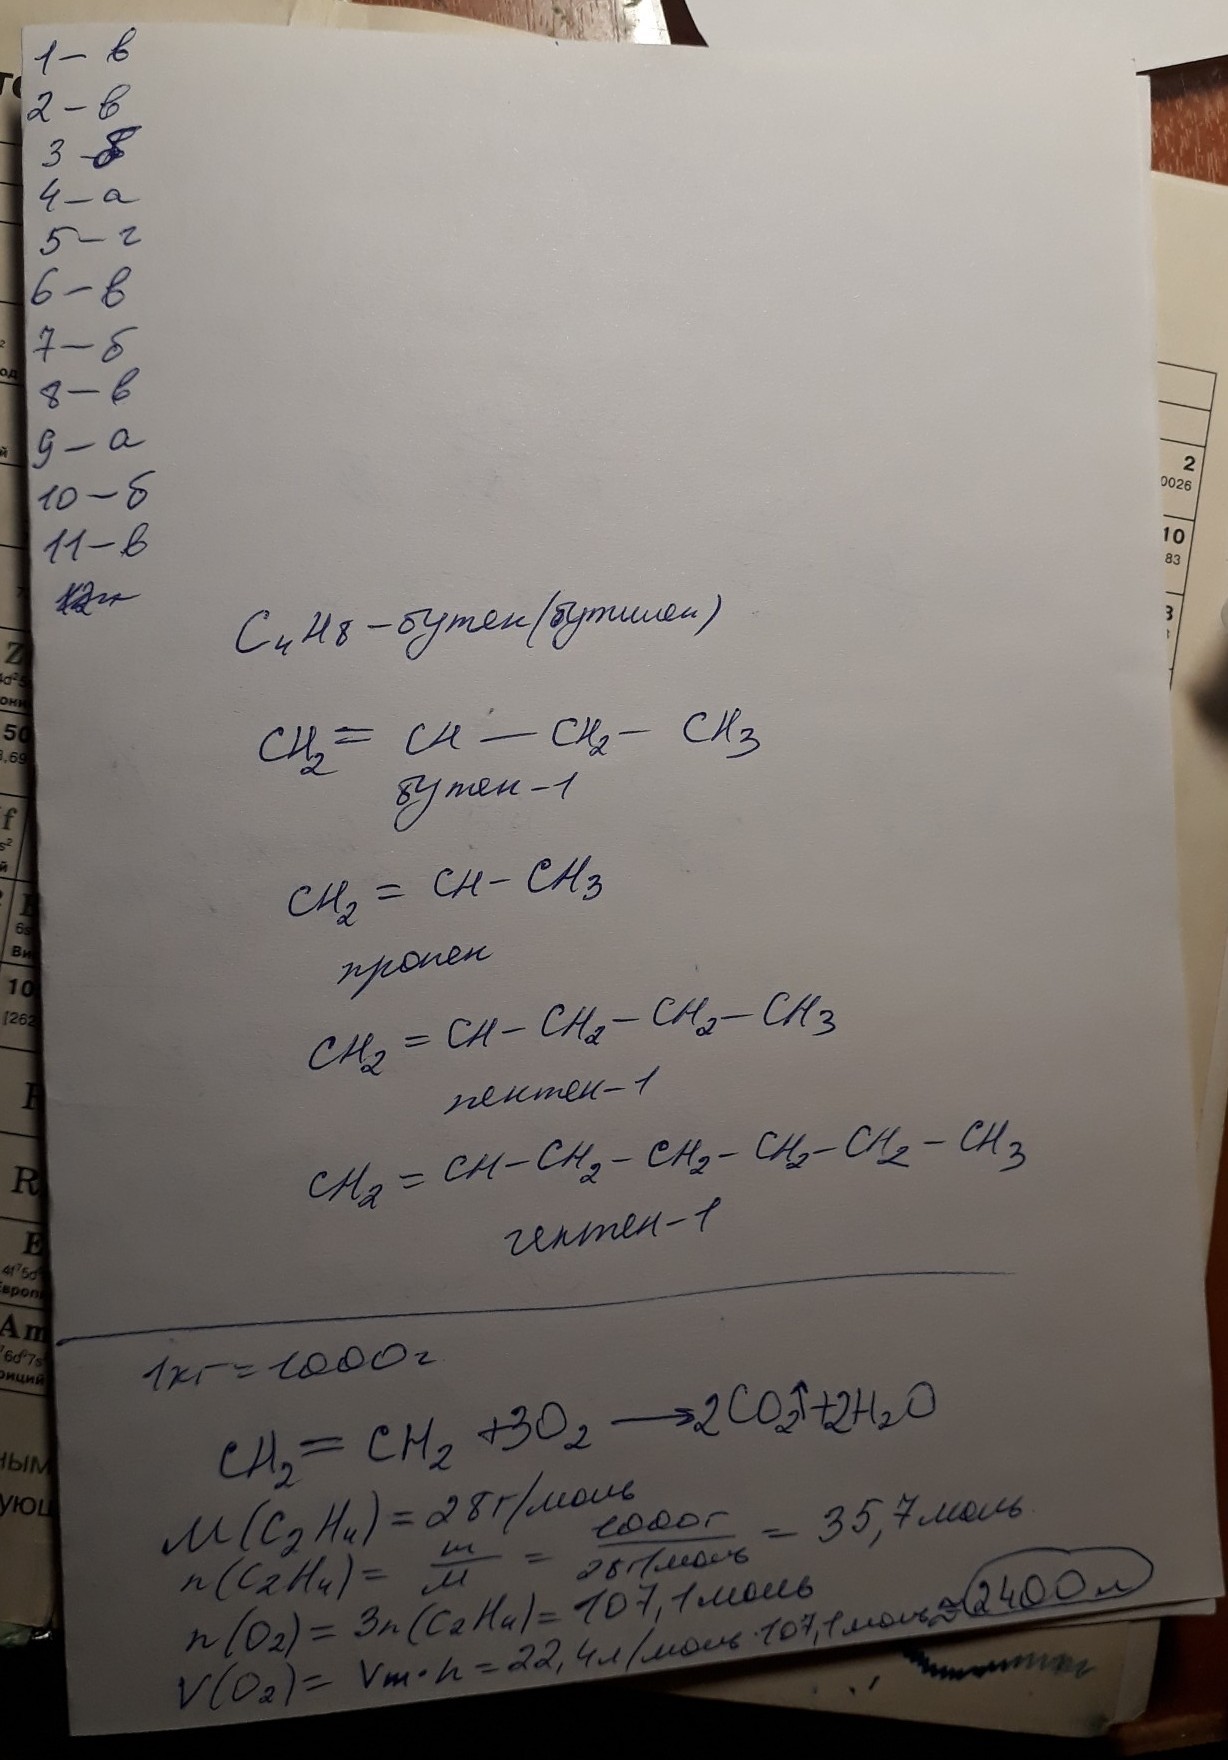 1 – в
2 – в
3 – б
4 – а
5 – г
6 – в
7 – б
8 – в
9 – а
10 – б
11 – в
C₄H₈ – бутен (бутилен)
CH₂ = CH — CH₂ – CH₃
бутен – 1
CH₂ = CH – CH₃
пропен
CH₂ = CH – CH₂ – CH₂ – CH₃
пентен – 1
CH₂ = CH – CH₂ – CH₂ – CH₂ – CH₂ – CH₃
гептен – 1
1кг = 1000г
CH₂ = CH₂ + 3O₂ → 2CO₂↑ + 2H₂O
M(C₂H₄) = 28г/моль
n(C₂H₄) = m/M = 1000г/28г/моль = 35,7моль
n(O₂) = 3n(C₂H₄) = 107,1моль
V(O₂) = Vm · n = 22,4л/моль · 107,1моль ≈ 2400л
2
0026
10
83
50
10
[262
Am